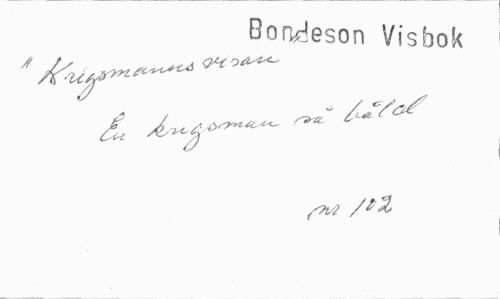 Bondeson Visbok
"Krigsmannsvisan"
En krigsman så båld
nr 102